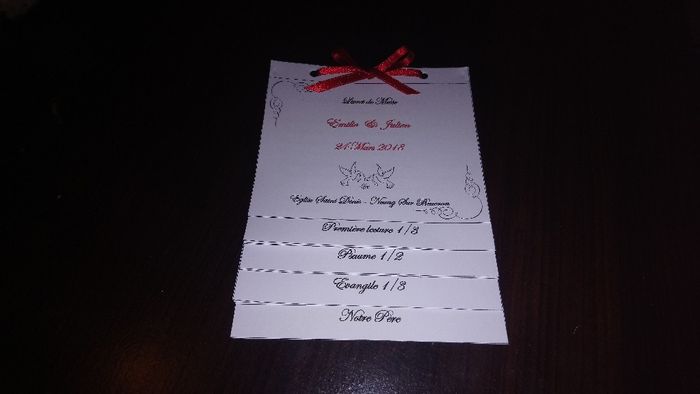 Livret de Messe
Emilie & Julien
24 Mars 2018
Eglise Saint Denis - Neung Sur Beuvron
Première lecture 1/3
Psaume 1/2
Evangile 1/3
Notre Père